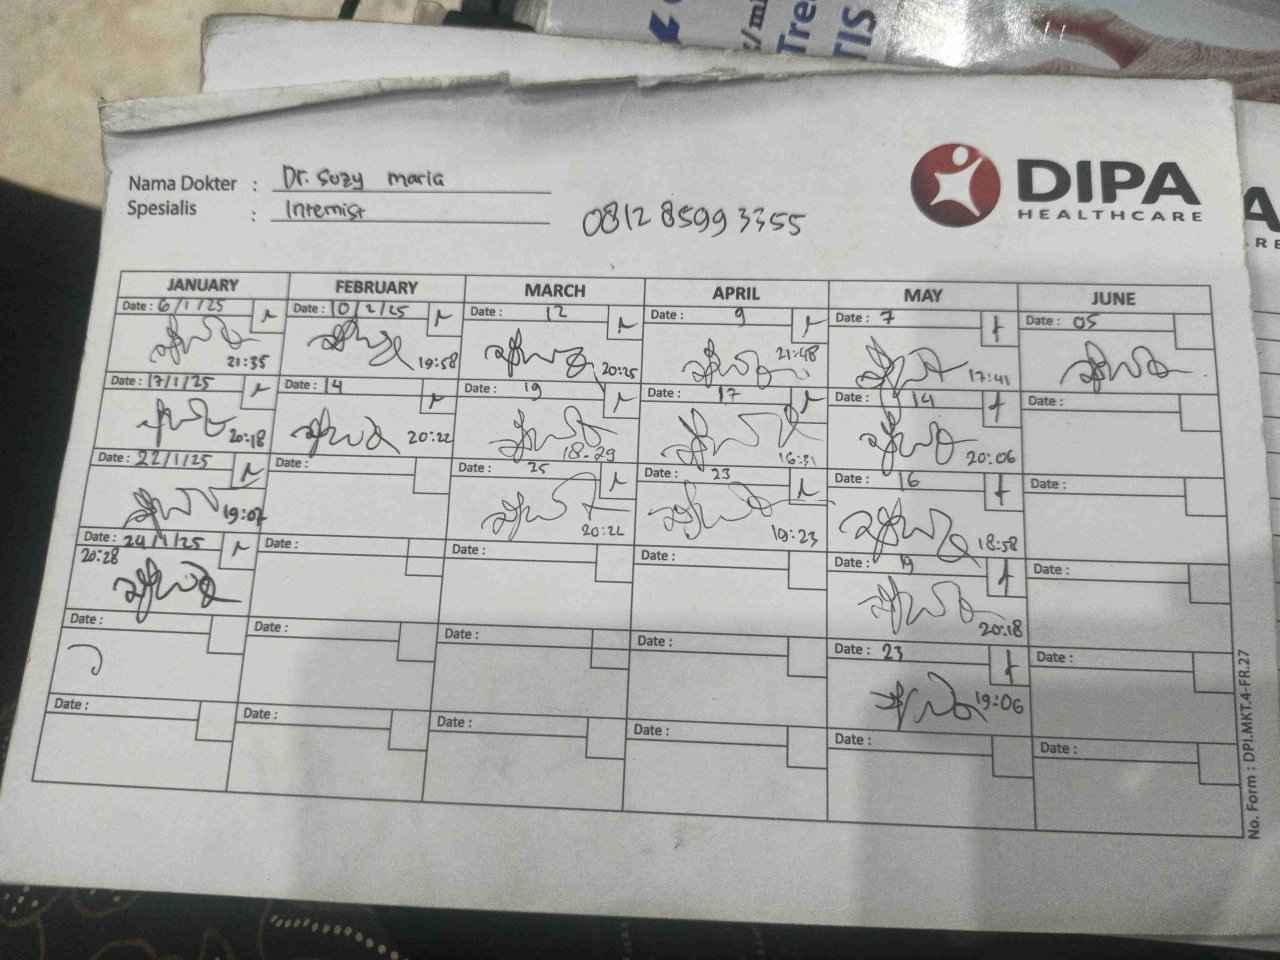 Tre
TIS
Nama Dokter : Dr. Suzy maria
Spesialis : Internist
0812 8599 3355
DIPA
HEALTHCARE
JANUARY FEBRUARY MARCH APRIL MAY JUNE
Date : 6/1/25 Date : 10/2/25 Date : 12 Date : 9 Date : 7 Date : 05
21:35 19:58 20:25 21:48 17:41
Date : 17/1/25 Date : 14 Date : 19 Date : 17 Date : 14 Date :
20:18 20:22 18-29 16:31 20:06
Date : 22/1/25 Date : Date : 25 Date : 23 Date : 16 Date :
19:07 20:22 19:23 18:58
Date : 24/1/25 Date : Date : Date : Date : 19 Date :
20:28 20:18
Date : Date : Date : Date : Date : 23 Date :
19:06
Date : Date : Date : Date : Date : Date :
No. Form : DPI.MKT.4-FR.27